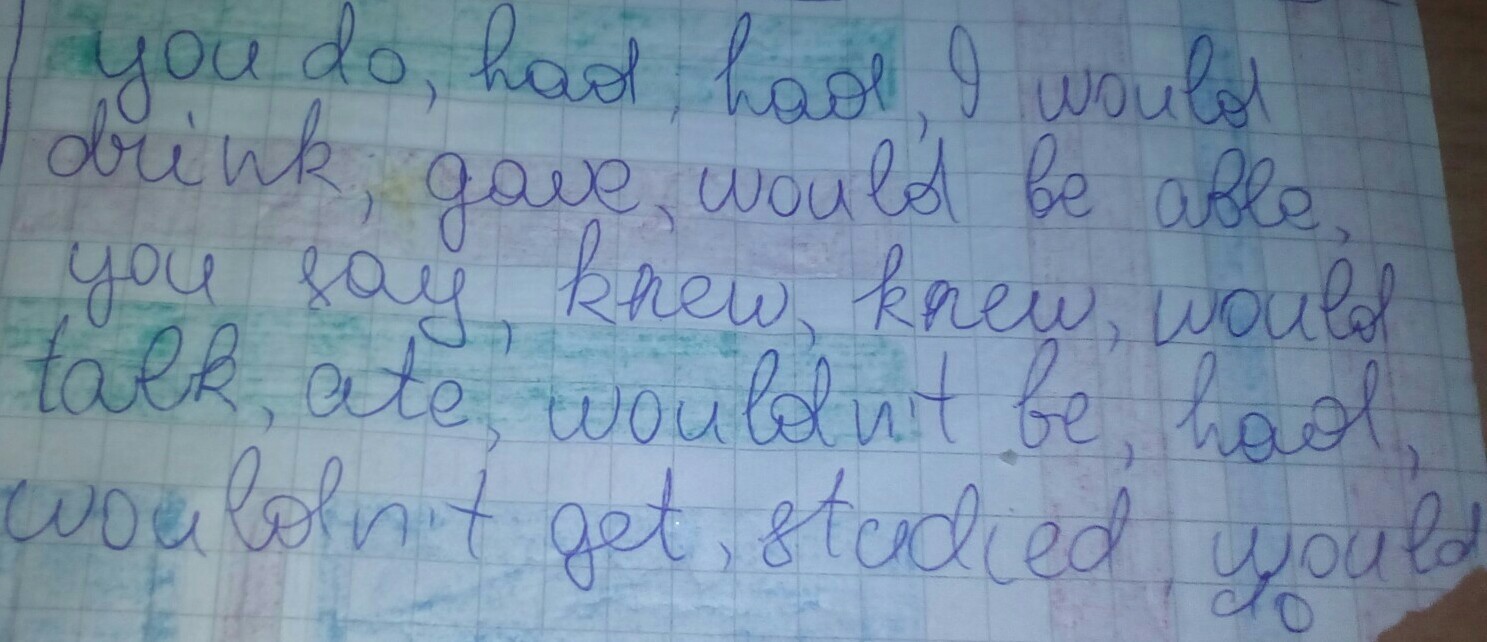 you do, had, had, I would
drink, gave, would be able,
you say, knew, knew, would
talk, ate, wouldn't be, had,
wouldn't get, studied, would
do